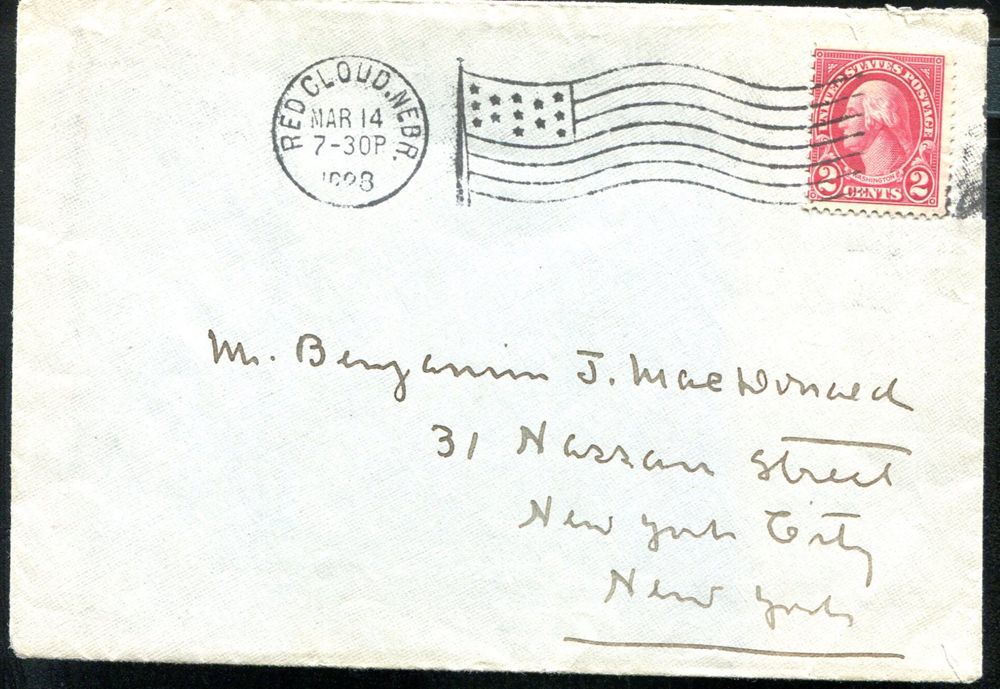 RED CLOUD, NEBR.
MAR 14
7-30P
1928
UNITED STATES POSTAGE
WASHINGTON
2 CENTS 2
Mr. Benjamin J. MacDonald
31 Nassau Street
New York City
New York